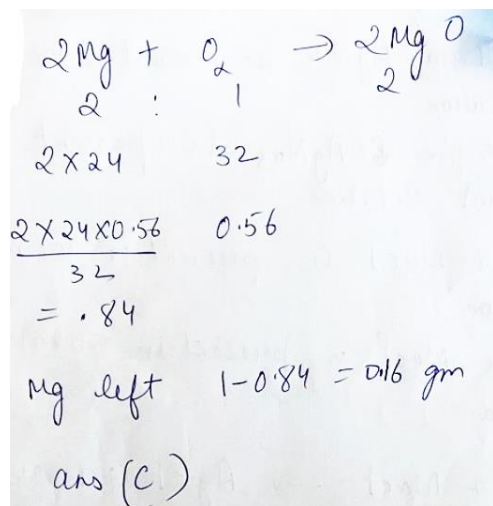 2Mg + O2 → 2MgO
2 : 1 2
2×24 32
2×24×0.56 0.56
32
= .84
Mg left 1-0.84 = 0.16 gm
ans (C)